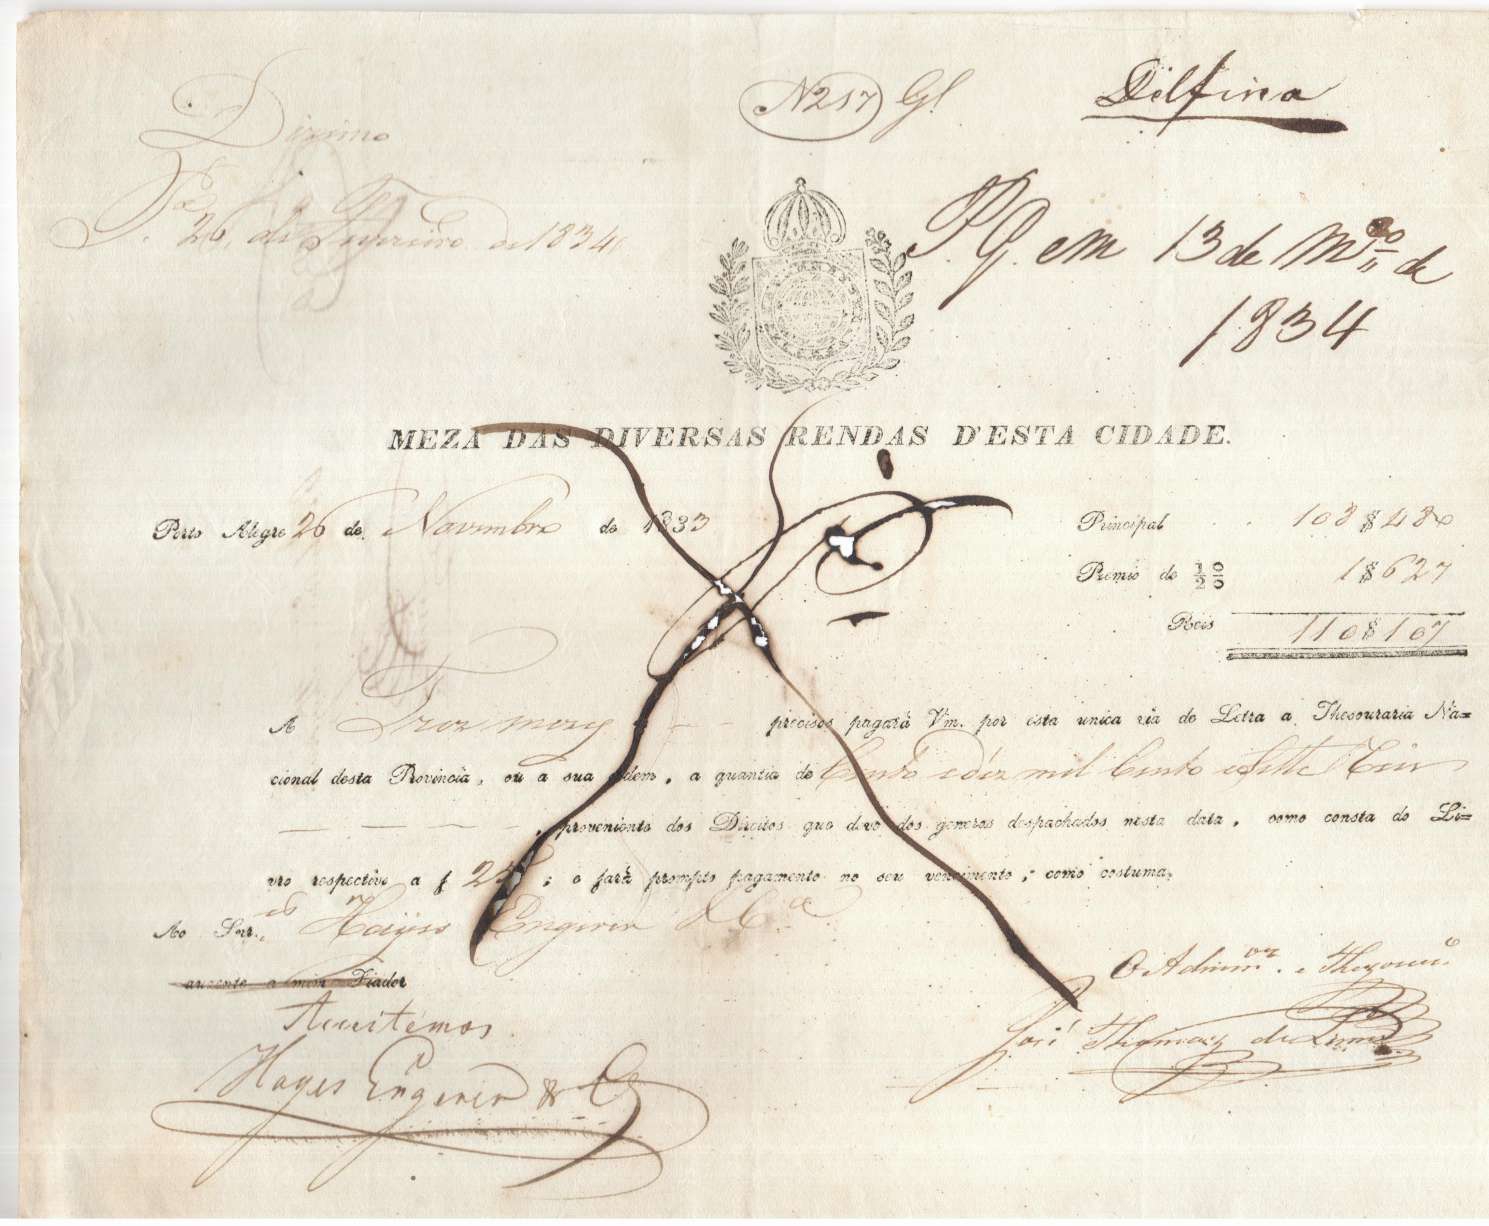 Dizimo
N 217 Gl
Delfina
26 de Fevereiro de 1834
P. G. em 13 de M.ço de
1834
MEZA DAS DIVERSAS RENDAS D'ESTA CIDADE.
Porto Alegre 26 de Novembro de 1833
Principal . . 108 $ 480
Premio de ½ 0/0 1 $ 627
Reis 110 $ 107
A Trez mezes precisos pagará Vm. por esta unica via de Letra a Thesouraria Na=
cional desta Provincia, ou á sua ordem, a quantia de Cento e dez mil Cento e Sette Reis
, proveniente dos Direitos que devo dos generos despachados nesta data, como consta do Li=
vro respectivo a f ; e fará prompto pagamento no seu vencimento, como costuma.
Ao Snr.es Hayes Engerer & C.a
auzente a mim Fiador
Aceitamos
Hayes Engerer & C.a
O Admin.or e Thezour.o
José Thomaz de Lima